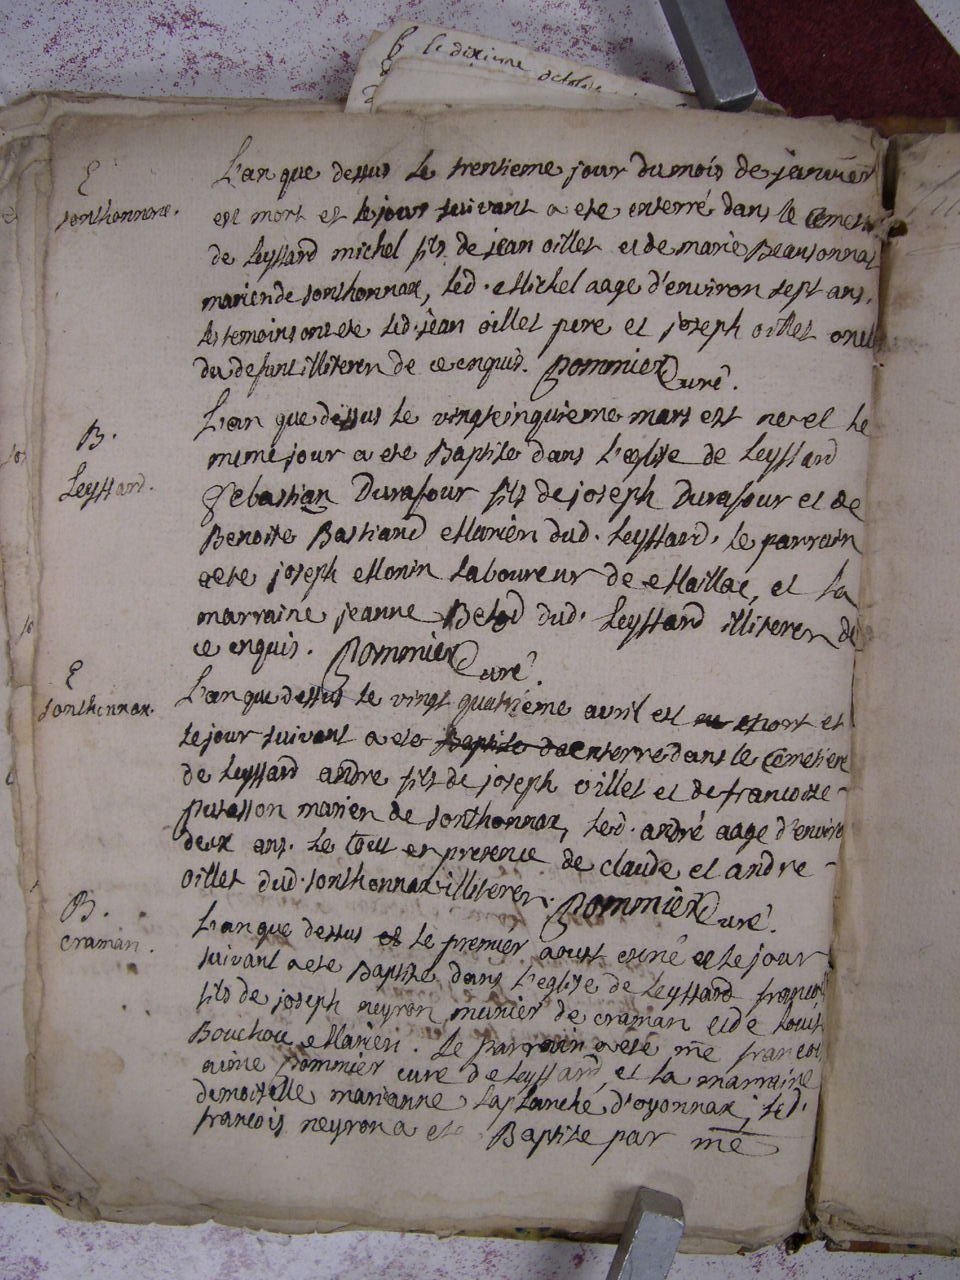 le dixieme octobre
E
sonthonnax.
L'an que dessus le trentieme jour du mois de janvier
est mort et le jour suivant a ete enterré dans le Cemet
de Leyssard michel fils de jean oillet et de marie Beausonnat
mariende sonthonnax, led. Michel aage d'environ sept ans.
les temoins ont ete led. jean oillet pere et joseph oillet oncl
du defunt illiteren de ce enquis. Pommier Curé.
B.
Leyssard.
L'an que dessus le vingtcinquieme mars est ne et le
meme jour a ete Baptise dans l'eglise de Leyssard
Sebastian Durafour fils de joseph Durafour et de
Benoite Bastiand Mariên dud. Leyssard. le parrain
a ete joseph Monin laboureur de Maillac, et la
marraine jeanne Belod dud. Leyssard illiteren de
ce enquis. Pommier Curé.
E
sonthonnax.
L'an que dessus le vingt quatriéme avril est mort et
le jour suivant a ete Baptise da enterré dans le Cemetiere
de Leyssard andre fils de joseph oillet et de francoise
putasson marien de sonthonnax, led. andré aage d'environ
deux ans. le tout en presence de claude et andre
oillet dud. sonthonnax illiteren. Pommier Curé.
B.
craman.
L'an que dessus et le premier aoust est né et le jour
suivant a ete Baptise dans l'eglise de Leyssard francois
fils de joseph neyron munier de craman et de Louis
Bouchou Marien. le parrain a ete me francois
aimé pommier curé de Leyssard, et la marraine
demoiselle marianne Laplanche d'oyonnax, led.
francois neyron a ete Baptise par me